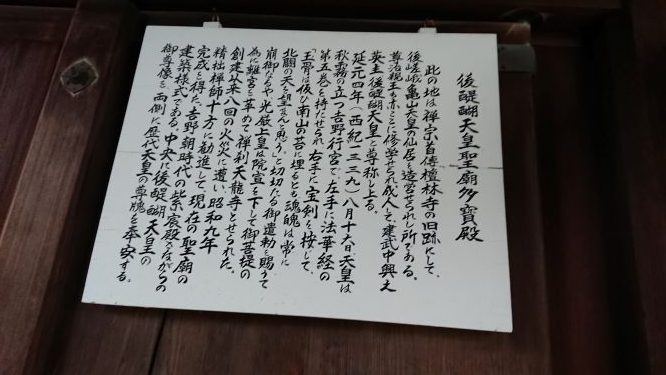 後醍醐天皇聖廟多寳殿
此の地は禅宗首傳檀林寺の旧跡にして、
後嵯峨亀山天皇の仙居を造営せられし所である。
尊治親王も亦ここに修学せられ成人して建武中興之
英主後醍醐天皇と尊称し上る。
延元四年（西紀一三三九）八月十六日天皇は
秋霧の立つ吉野行宮で、左手に法華経の
第五巻を持たせられ右手に宝剣を按して、
「玉骨は仮ひ南山の苔に埋るとも魂魄は常に
北闕の天を望まんと思う」と切切たる御遺勅を賜うて
崩御なるや光厳上皇は院宣を下して御菩提の
為に離宮を革めて禅刹天龍寺とせられた。
創建以来八回の火災に遭い、昭和九年
精拙禅師十方に勧進して、現在の聖廟の
完成を得た。吉野朝時代の紫宸殿さながらの
建築様式である。中央に後醍醐天皇の
御尊像を、両側に歴代天皇の尊牌を奉安する。